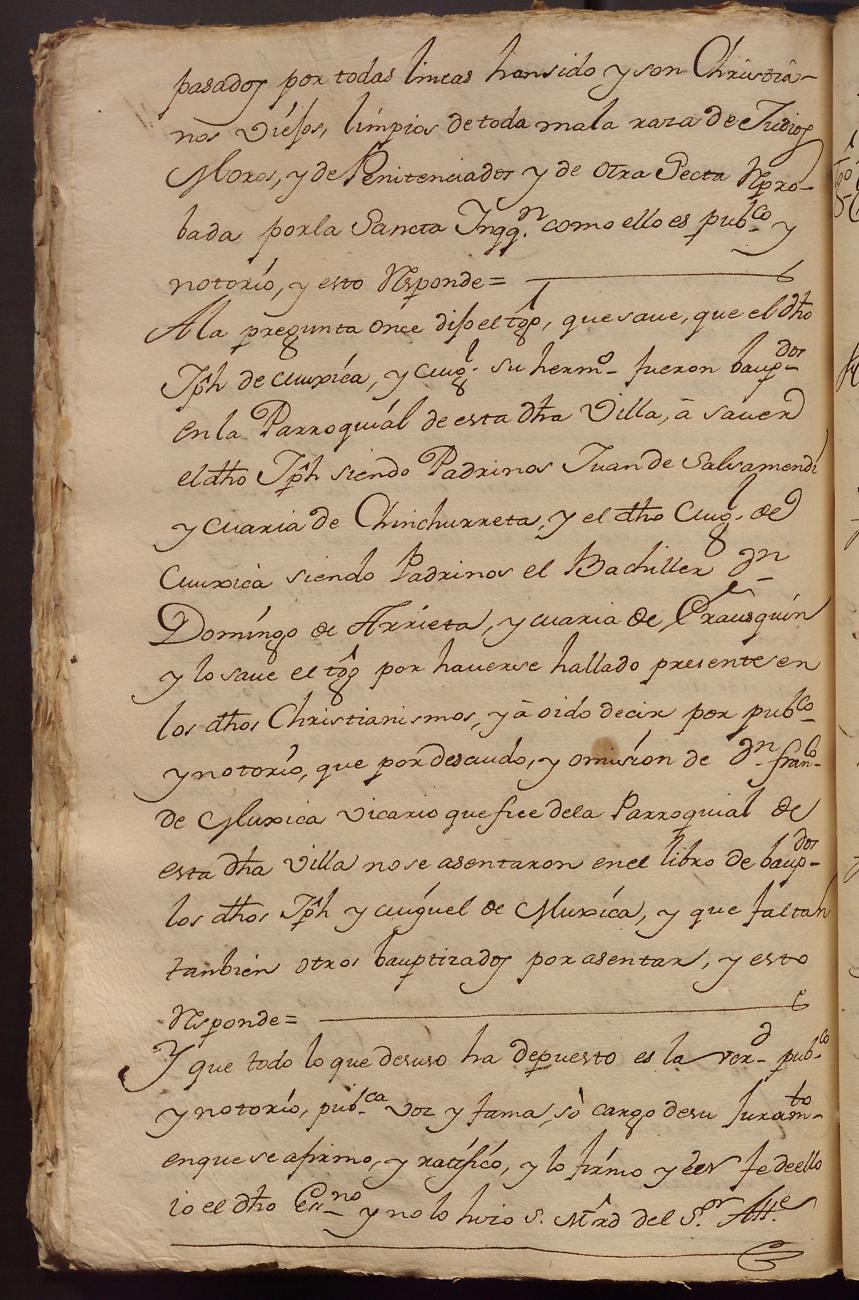 pasados por todas lineas han sido y son Christia-
nos Viejos, limpios de toda mala raza de Judios
Moros, y de Penitenciados y de otra Secta Repro-
bada por la Sancta Inqq.on como ello es pubco y
notorio, y esto Responde=
A la pregunta once dijo el tgo, que save, que el dho
Jph de Muxica, y Migl. su hermo fueron baupdos
en la Parroquial de esta dha Villa, â saver
el dho Jph siendo Padrinos Juan de Salsamendi
y Maria de Chinchurreta, y el dho Migl. de
Muxica siendo Padrinos el Bachiller Dn
Domingo de Arrieta, y Maria de Erausquin
y lo save el tgo por haverse hallado presente en
los dhos Christianismos, y â oido decir por pubco
y notorio, que por descudo, y omision de Dn franco
de Muxica Vicario que fue de la Parroquial de
esta dha Villa no se asentaron en el libro de baupdos
los dhos Jph y Miguel de Muxica, y que faltan
tanbien otros bauptizados por asentar, y esto
Responde=
Y que todo lo que desuso ha depuesto es la verd pubco
y notorio, pubca voz y fama, sò cargo de su Juramto
en que se afirmo, y ratificó, y lo firmo y fe de ello
io el dho Essno y no lo hizo S. Mrd del Sor Alle